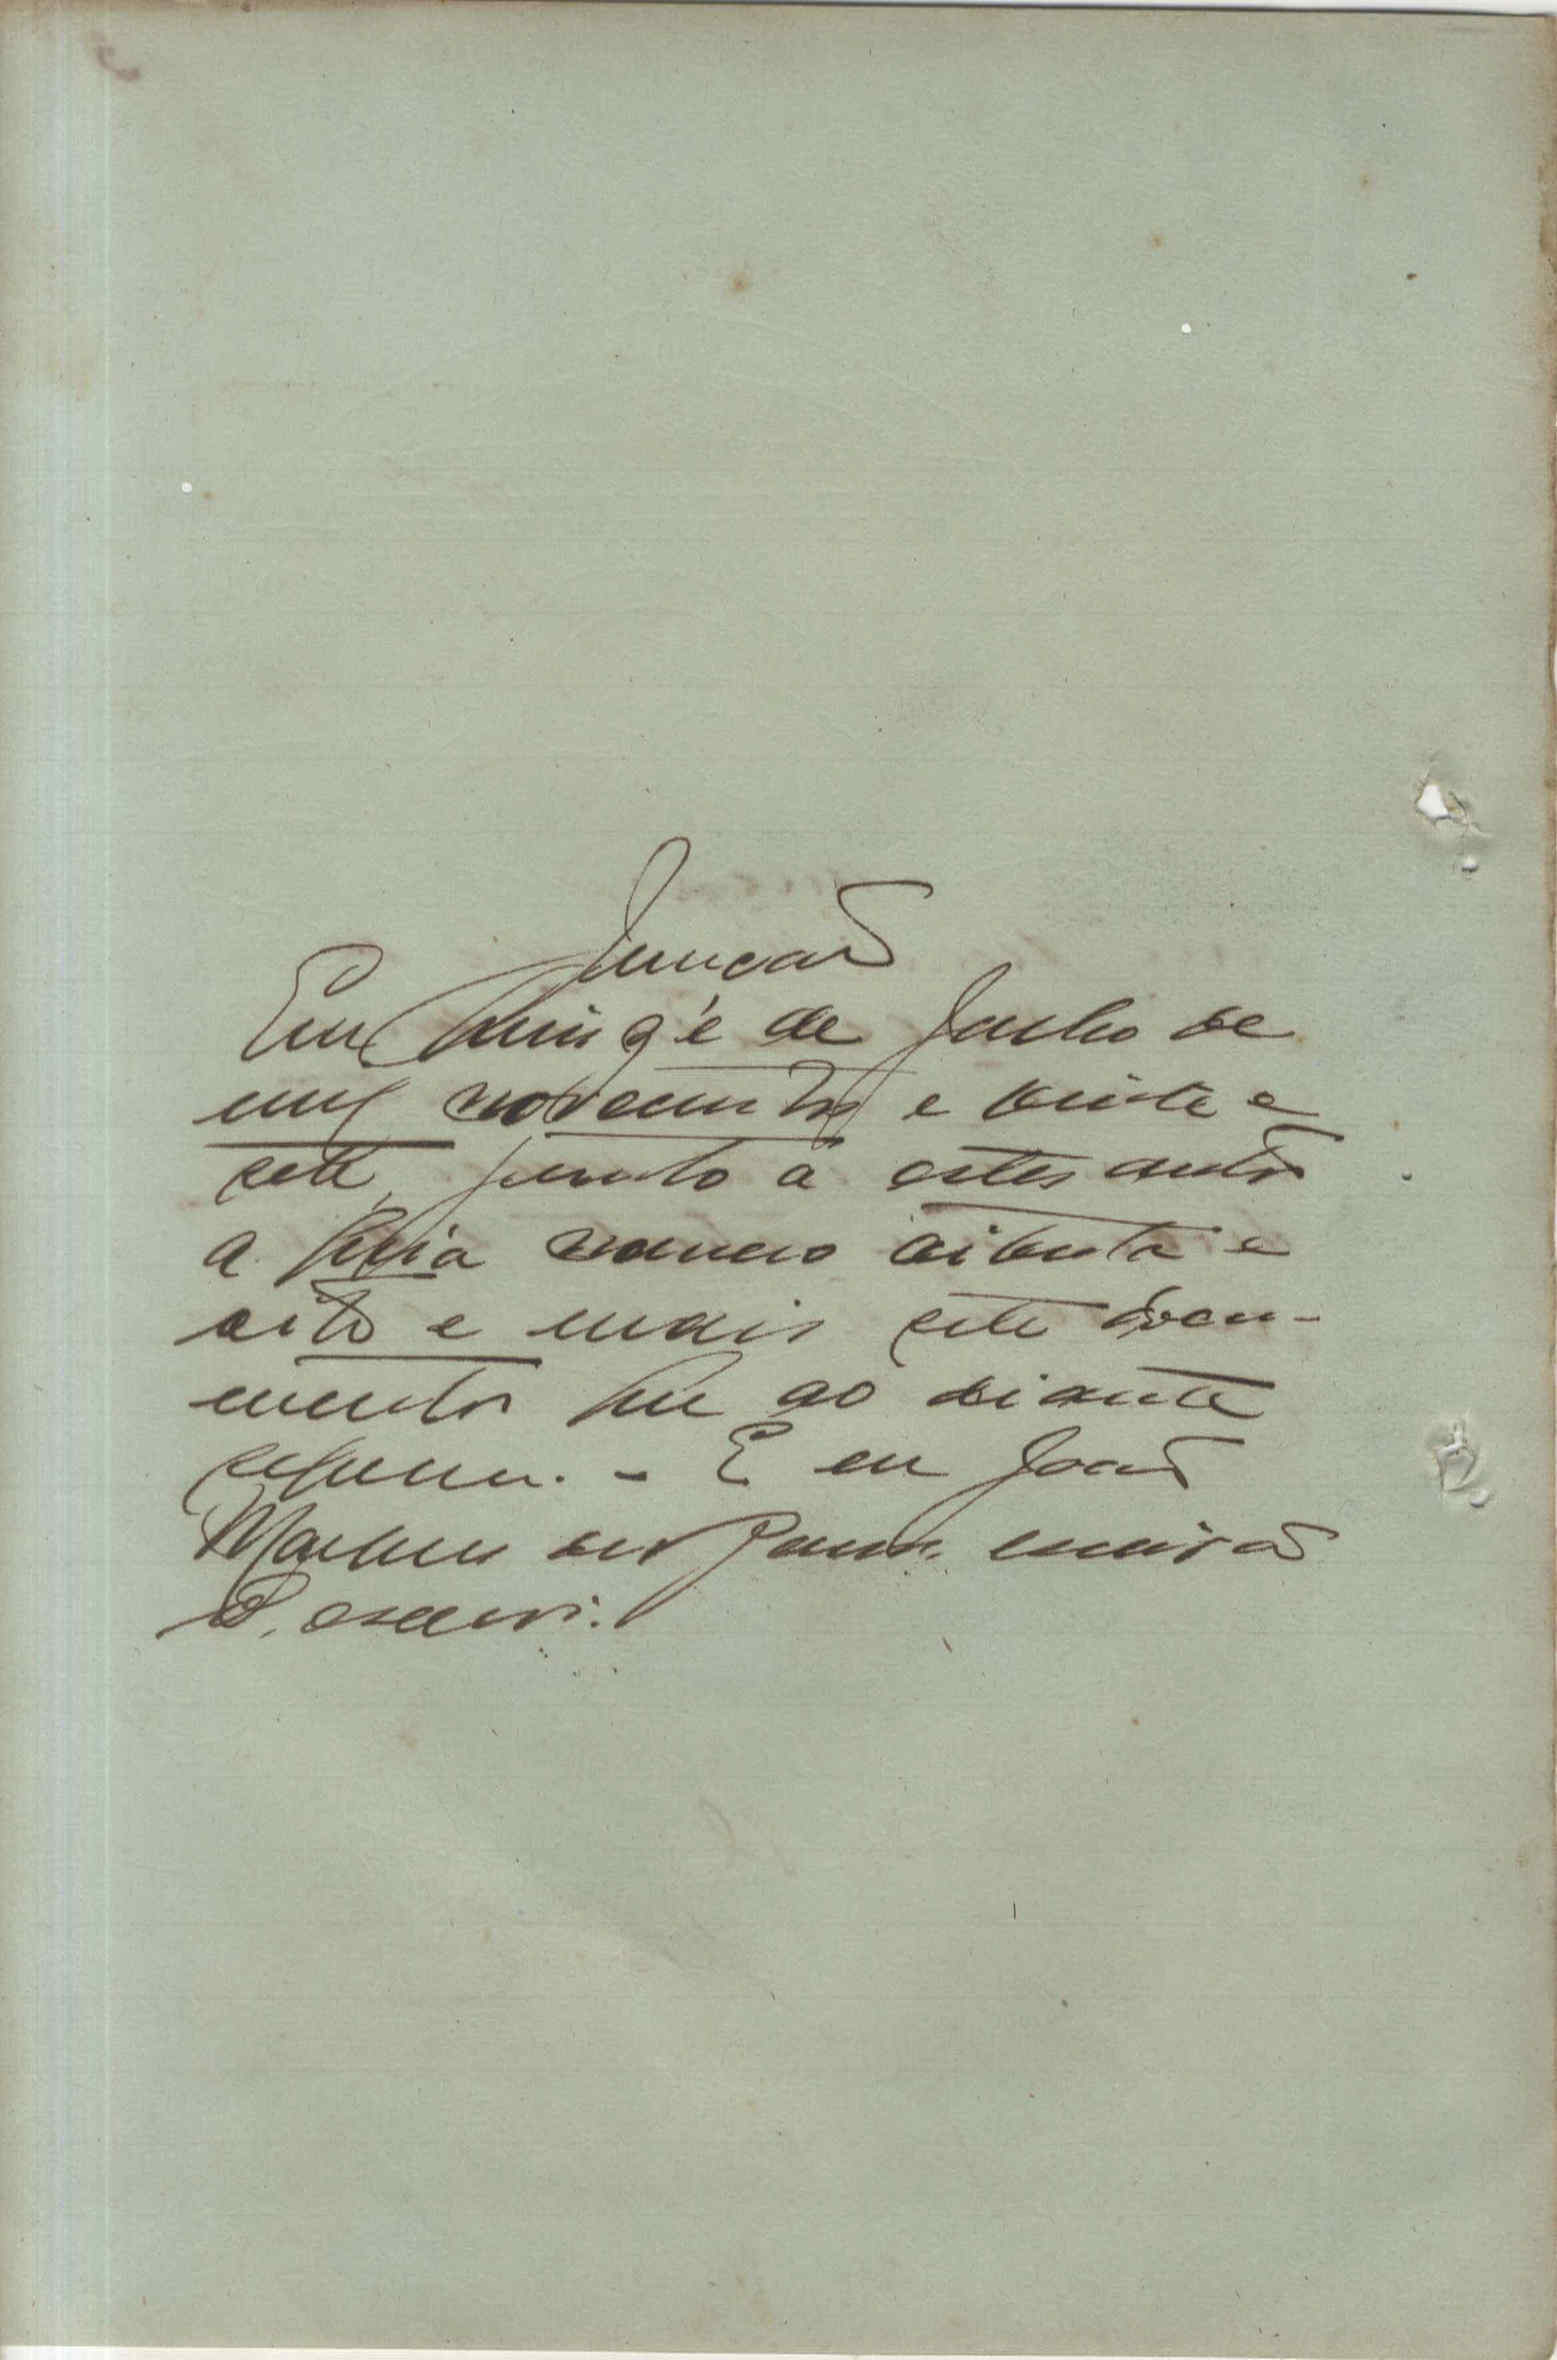 Juncão
Em quinze de Junho de
mil novecentos e vinte e
sete, junto a estes autos
a guia numero oitenta e
oito e mais sete docu-
mentos que ao diante
seguem. - E eu João
Martins dos escrivão
o escrevi.